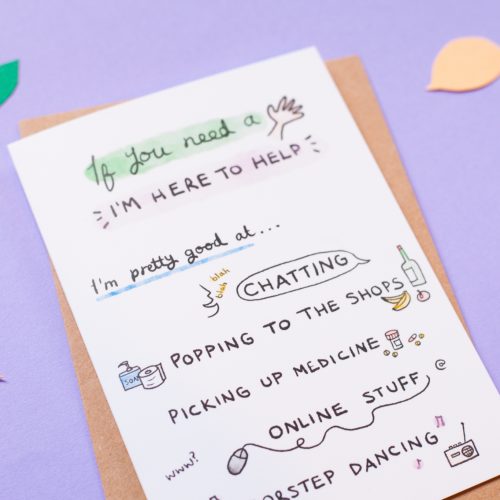 If you need a
I'M HERE TO HELP
I'm pretty good at...
blah
blah
CHATTING
POPPING TO THE SHOPS
SOAP
PICKING UP MEDICINE
ONLINE STUFF
@
www?
DANCING